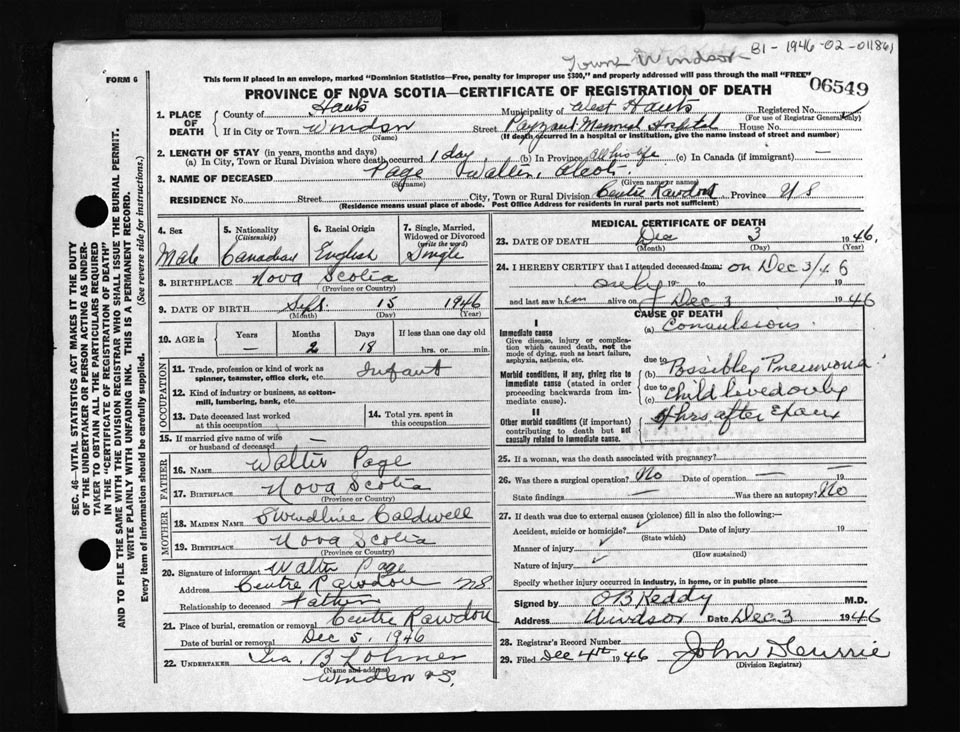 Town Windsor
81-1946-02-011861
FORM 6
This form if placed in an envelope, marked "Dominion Statistics—Free, penalty for improper use $300," and properly addressed will pass through the mail "FREE"
06549
PROVINCE OF NOVA SCOTIA—CERTIFICATE OF REGISTRATION OF DEATH
1. PLACE OF DEATH
County of Hants Municipality of West Hants Registered No.
(For use of Registrar General only)
If in City or Town Windsor Street Payzant Memorial Hospital House No.
(Name) (If death occurred in a hospital or institution, give the name instead of street and number)
2. LENGTH OF STAY (in years, months and days)
(a) In City, Town or Rural Division where death occurred 1 day (b) In Province All his life (c) In Canada (if immigrant) —
3. NAME OF DECEASED Page Wallin,
(Surname) (Given name or names)
RESIDENCE No. Street City, Town or Rural Division Centre Rawdon Province N S
(Residence means usual place of abode. Post Office Address for residents in rural parts not sufficient)
4. Sex
Male
5. Nationality
(Citizenship)
Canadian
6. Racial Origin
English
7. Single, Married, Widowed or Divorced
(write the word)
Single
8. BIRTHPLACE Nova Scotia
(Province or Country)
9. DATE OF BIRTH Sept. 15 1946
(Month) (Day) (Year)
10. AGE in
Years Months Days If less than one day old
— 2 18 hrs. or min.
OCCUPATION
11. Trade, profession or kind of work as spinner, teamster, office clerk, etc. Infant
12. Kind of industry or business, as cotton-mill, lumbering, bank, etc.
13. Date deceased last worked at this occupation
14. Total yrs. spent in this occupation
15. If married give name of wife or husband of deceased —
FATHER
16. NAME Walter Page
17. BIRTHPLACE Nova Scotia
(Province or Country)
MOTHER
18. MAIDEN NAME Swendline Caldwell
19. BIRTHPLACE Nova Scotia
(Province or Country)
20. Signature of informant Walter Page
Address Centre Rawdon NS
Relationship to deceased Father
21. Place of burial, cremation or removal Centre Rawdon
Date of burial or removal Dec 5, 1946
22. UNDERTAKER Ira. B Lohnes
(Name and address)
Windsor NS.
MEDICAL CERTIFICATE OF DEATH
23. DATE OF DEATH Dec 3 1946.
(Month) (Day) (Year)
24. I HEREBY CERTIFY that I attended deceased from: on Dec 3/46
only 19 to 19
and last saw him alive on Dec 3 1946
CAUSE OF DEATH
I
Immediate cause
Give disease, injury or complication which caused death, not the mode of dying, such as heart failure, asphyxia, asthenia, etc.
(a) Convulsions.
due to
Morbid conditions, if any, giving rise to immediate cause (stated in order proceeding backwards from immediate cause).
(b) Possibly Pneumonia
due to
(c) child lived only
II
Other morbid conditions (if important) contributing to death but not causally related to immediate cause.
hrs after
25. If a woman, was the death associated with pregnancy?
26. Was there a surgical operation? No Date of operation — — 19
State findings — Was there an autopsy? No
27. If death was due to external causes (violence) fill in also the following:—
Accident, suicide or homicide? Date of injury 19
(State which)
Manner of injury
(How sustained)
Nature of injury
Specify whether injury occurred in industry, in home, or in public place
Signed by O B Keddy M.D.
Address Windsor Date Dec 3 1946
28. Registrar's Record Number
29. Filed Dec 4th 1946 John D Currie
(Division Registrar)
SEC. 46—VITAL STATISTICS ACT MAKES IT THE DUTY
OF THE UNDERTAKER OR PERSON ACTING AS UNDER-
TAKER TO OBTAIN ALL THE PARTICULARS REQUIRED
IN THE "CERTIFICATE OF REGISTRATION OF DEATH"
AND TO FILE THE SAME WITH THE DIVISION REGISTRAR WHO SHALL ISSUE THE BURIAL PERMIT.
WRITE PLAINLY WITH UNFADING INK. THIS IS A PERMANENT RECORD.
Every item of Information should be carefully supplied. (See reverse side for instructions.)